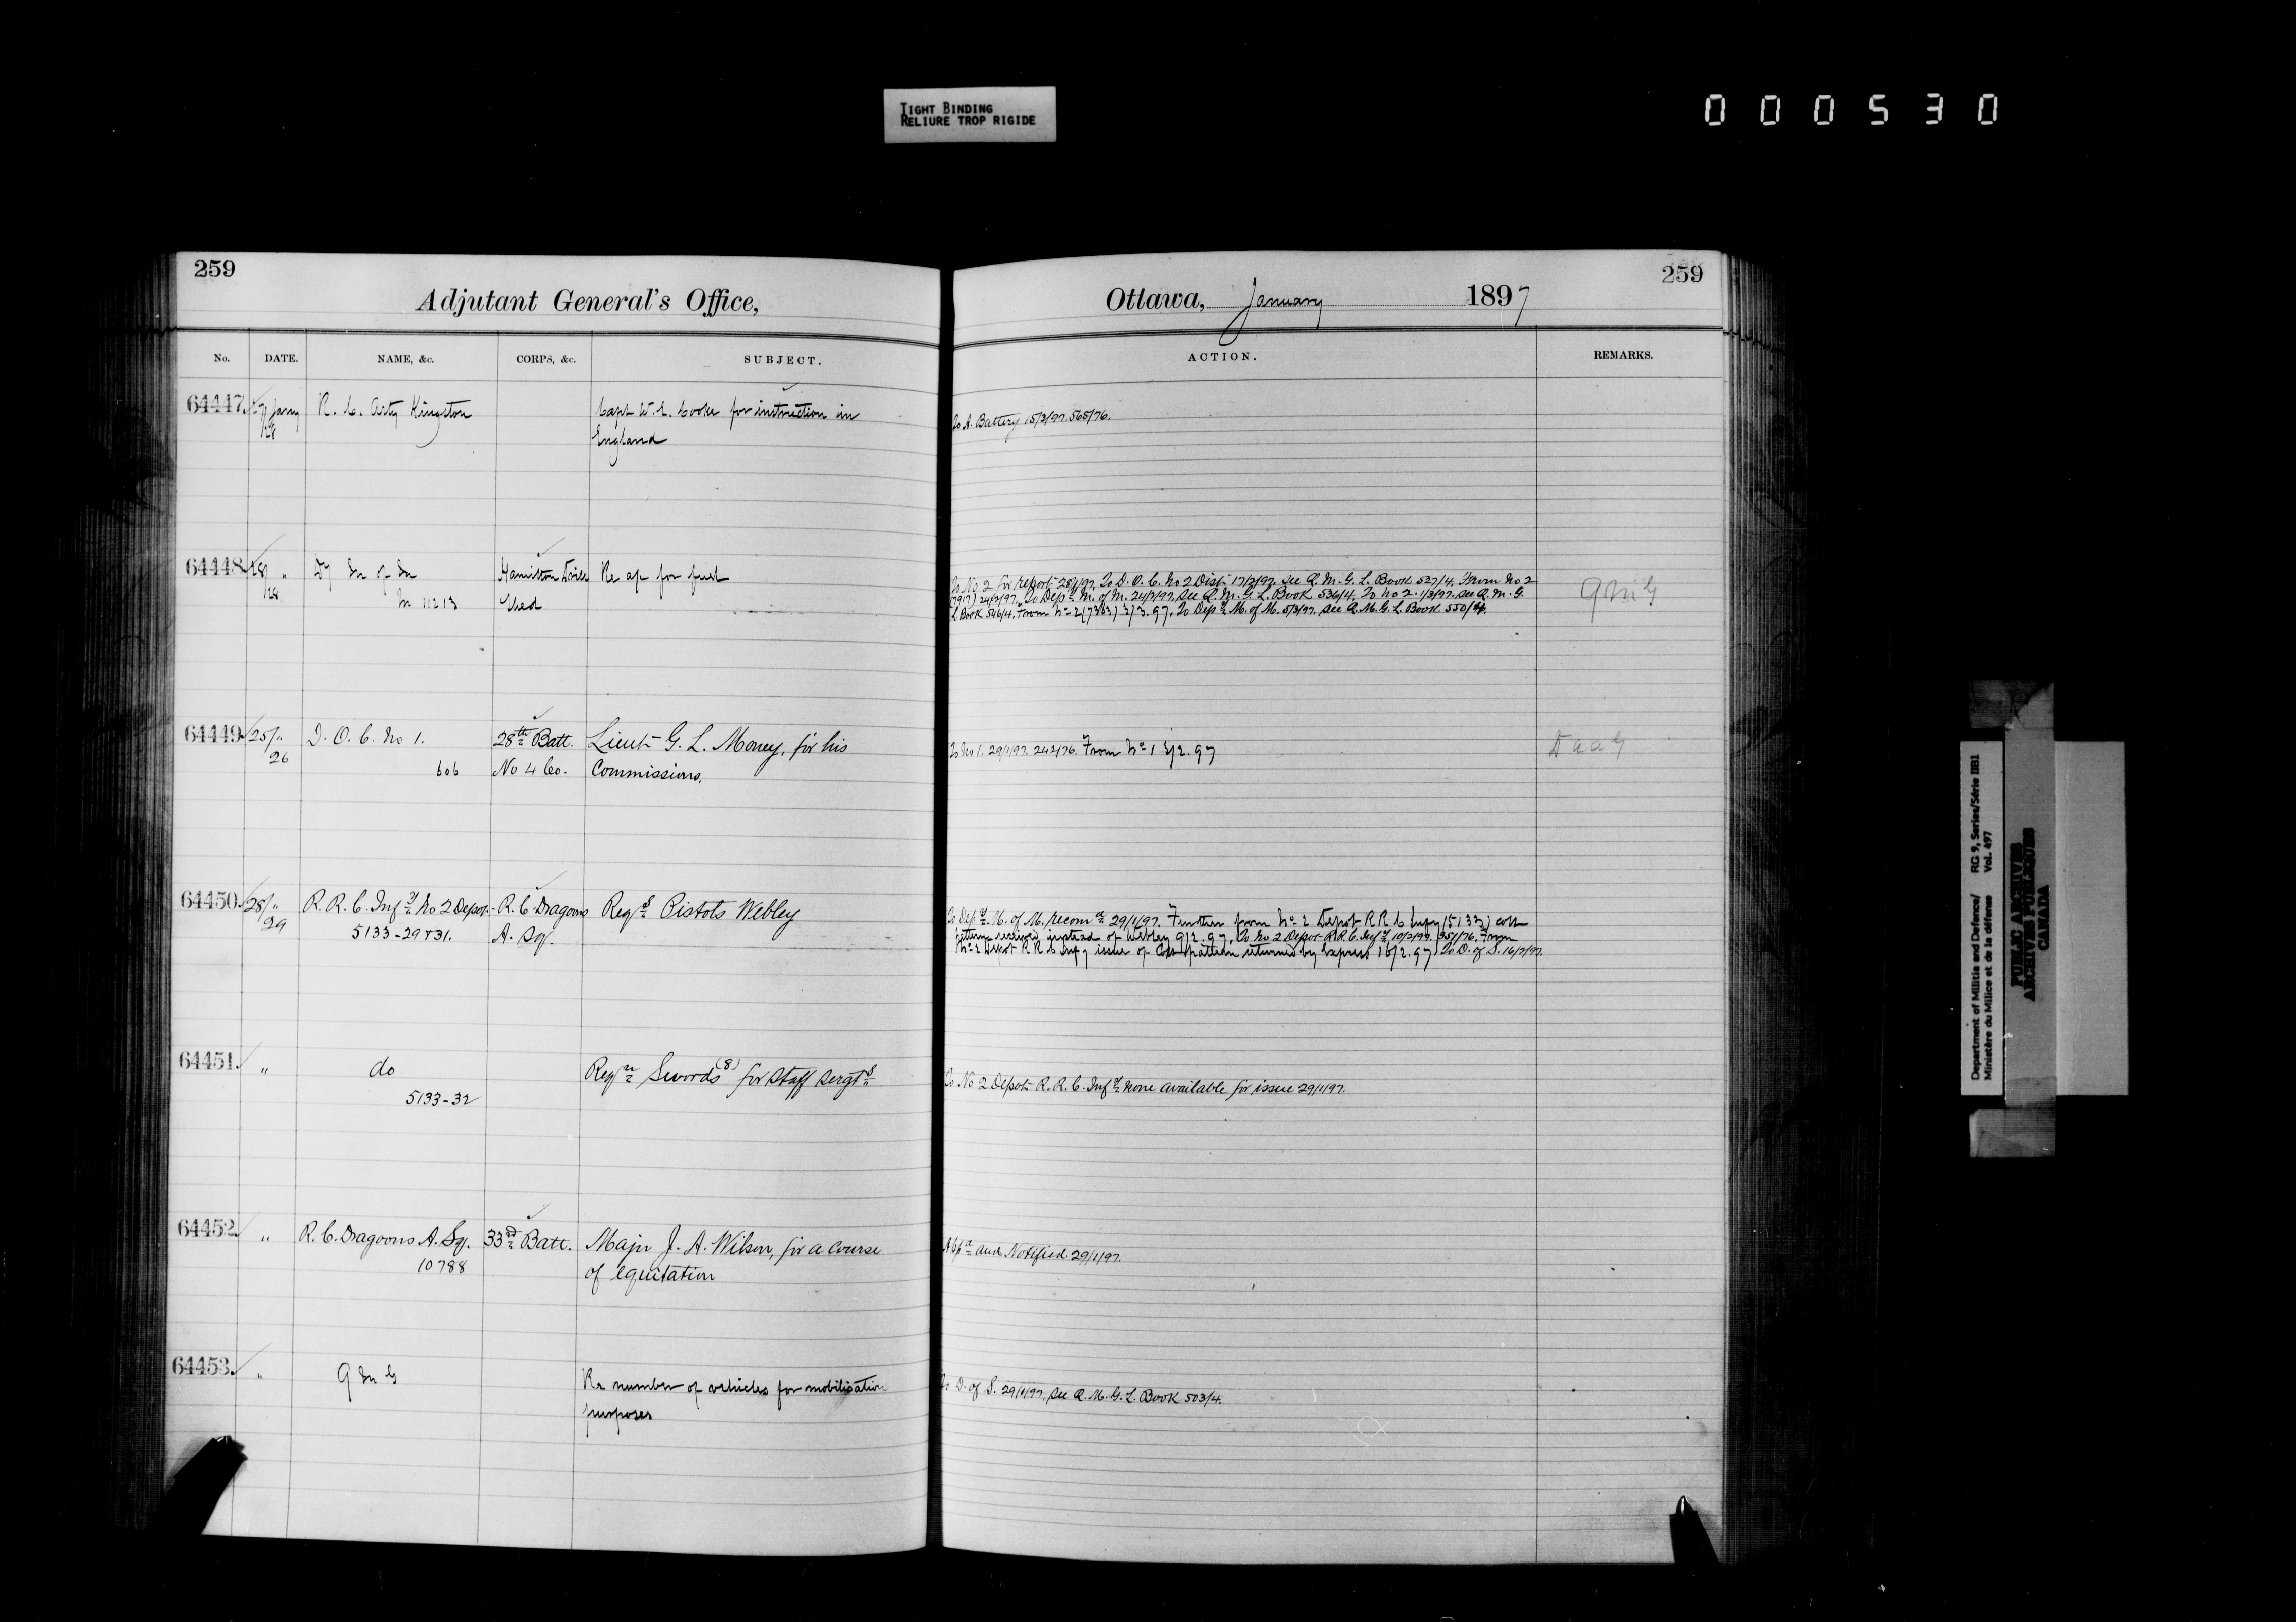 TIGHT BINDING
RELIURE TROP RIGIDE
000530
259
Adjutant General's Office,
No. DATE. NAME, &c. CORPS, &c. SUBJECT.
64447. 27 Jany R. C. Arty Kingston Capt W. E. Cooke for instruction in
/28 England
64448. 28/ " Dy M of M Hamilton Drill Re ap for fuel
/28 M 11213 Shed
64449. 25/ " D. O. C. No 1. 28th Batt. Lieut G. L. Money, for his
26 606 No 4 Co. Commissions.
64450. 28/ " R. R. C. Infy No 2 Depot R. C. Dragoons Reqs Pistols Webley
29 5133-29&31. A. Sq.
64451. " do Reqn Swords (8) for Staff Sergts
5133-32
64452. " R. C. Dragoons A. Sq. 33rd Batt. Major J. A. Wilson, for a course
10788 of equitation
64453. " Q M G Re number of vehicles for mobilisation
purposes
259
Ottawa, January 1897
ACTION. REMARKS.
To A. Battery 15/3/97. 565/76.
To No 2 for report 28/1/97. To D. O. C. No 2 Dist. 17/2/97. See Q. M. G. L. Book 527/4. From No 2
(7917) 24/2/97. To Depy M. of M. 24/2/97. See Q. M. G. L. Book 536/4. To No 2. 1/3/97. See Q. M. G.
L. Book 546/4. From No 2 (7363) 3/3.97. To Depy M. of M. 5/3/97. See Q. M. G. L. Book 550/4.
Q M G
To No 1. 29/1/97. 242/76. From No 1 3/2.97
D a a G
To Depy M. of M. recomd 29/1/97. Further from No 2 Depot R R C Infy (5133) Colt
pattern received instead of Webley 9/2.97. To No 2 Depot R. R. C. Infy 10/2/97. 351/76. From
No 2 Depot R R C Infy issue of Colt pattern returned by Express 16/2.97 To D. of S. 16/2/97.
To No 2 Depot R. R. C. Infy None available for issue 29/1/97.
and Notified 29/1/97.
To D. of S. 29/1/97. See Q. M. G. L. Book 503/4.
Department of Militia and Defence/ RG 9, Series/Série IIB1
Ministère du Milice et de la défense Vol. 497
PUBLIC ARCHIVES
ARCHIVES PUBLIQUES
CANADA